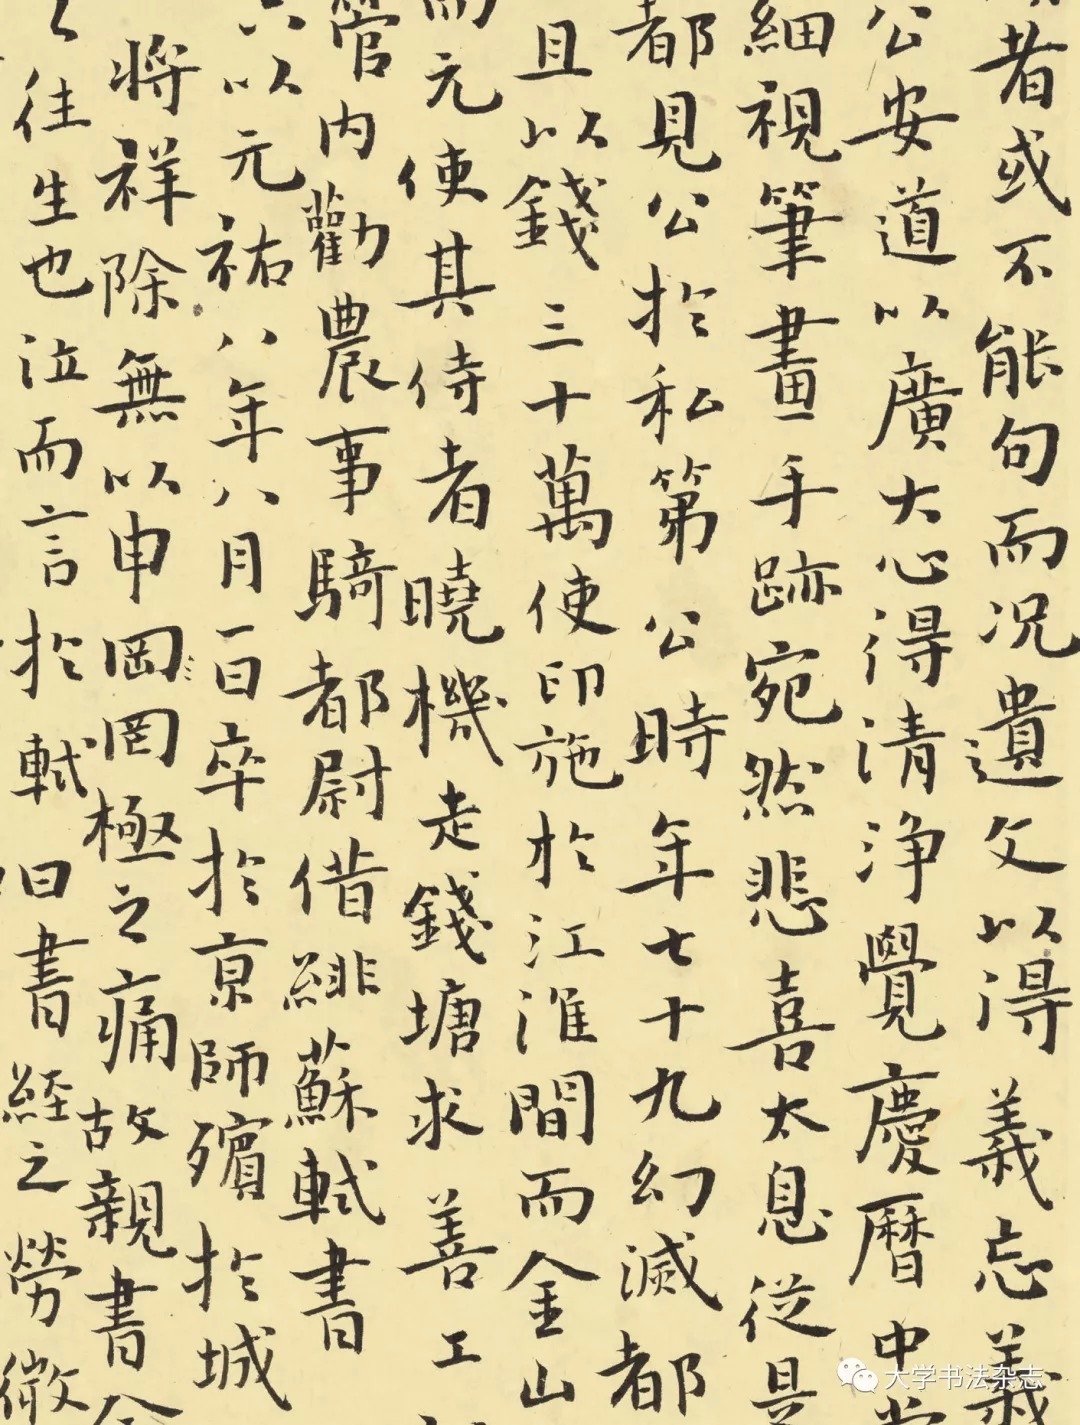 者或不能句而况遺文以得義忘義
公安道以廣大心得清淨覺慶曆中
細視筆畫手跡宛然悲喜太息從是
都見公於私第公時年七十九幻滅都
且以錢三十萬使印施於江淮間而金山
元使其侍者曉機走錢塘求善工
管内勸農事騎都尉借緋蘇軾書
以元祐八年八月一日卒於京師殯於城
將祥除無以申罔罔極之痛故親書
往生也泣而言於軾曰書經之勞微
大学书法杂志